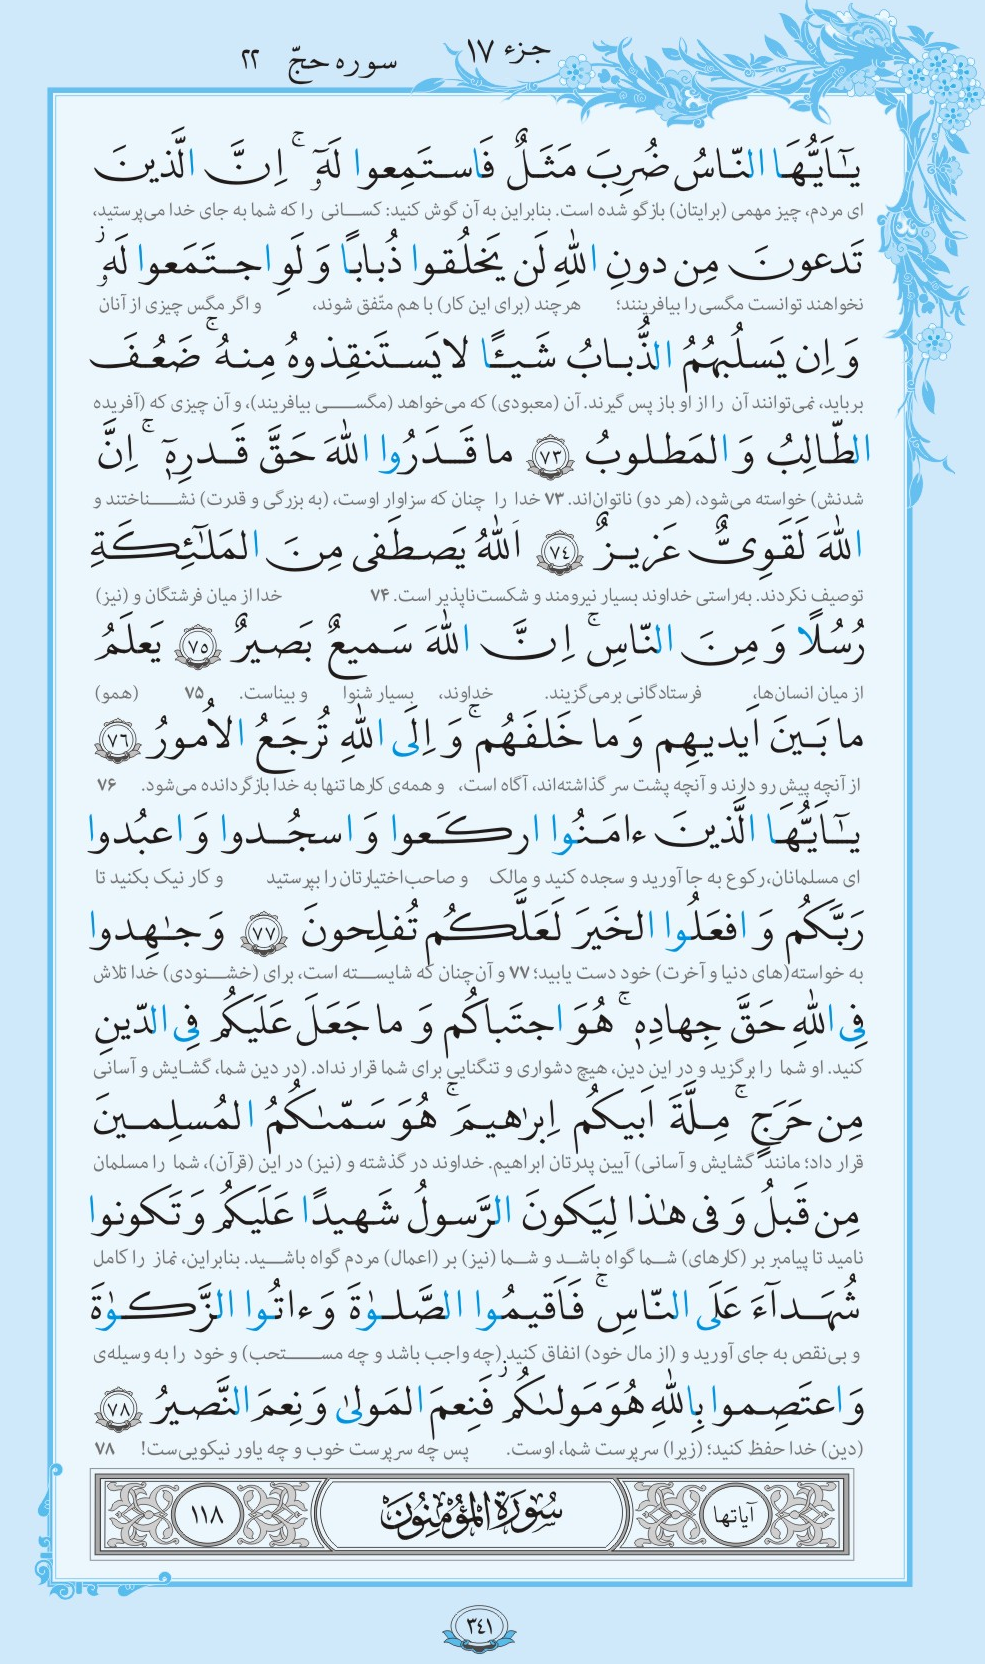 جزء ۱۷
سوره حجّ ۲۲
يٰٓاَيُّهَا النّاسُ ضُرِبَ مَثَلٌ فَاستَمِعوا لَهٗٓ ۚ اِنَّ الَّذينَ
ای مردم، چیز مهمی (برایتان) بازگو شده است. بنابراین به آن گوش کنید: کسانی را که شما به جای خدا می‌پرستید،
تَدعونَ مِن دونِ اللّٰهِ لَن يَخلُقوا ذُبابًا وَ لَوِ اجتَمَعوا لَهٗ ز
نخواهند توانست مگسی را بیافرینند؛ هرچند (برای این کار) با هم متّفق شوند، و اگر مگس چیزی از آنان
وَ اِن يَسلُبهُمُ الذُّبابُ شَيـًٔا لا يَستَنقِذوهُ مِنهُ ۚ ضَعُفَ
برباید، نمی‌توانند آن را از او باز پس گیرند. آن (معبودی) که می‌خواهد (مگسی بیافریند)، و آن چیزی که (آفریده
الطّالِبُ وَ المَطلوبُ ﴿۷۳﴾ ما قَدَرُوا اللّٰهَ حَقَّ قَدرِهٖٓ ۚ اِنَّ
شدنش) خواسته می‌شود، (هر دو) ناتوان‌اند. ۷۳ خدا را چنان که سزاوار اوست، (به بزرگی و قدرت) نشناختند و
اللّٰهَ لَقَوِىٌّ عَزيزٌ ﴿۷۴﴾ اَللّٰهُ يَصطَفى مِنَ المَلٰٓئِكَةِ
توصیف نکردند. به‌راستی خداوند بسیار نیرومند و شکست‌ناپذیر است. ۷۴ خدا از میان فرشتگان و (نیز)
رُسُلًا وَ مِنَ النّاسِ ۚ اِنَّ اللّٰهَ سَميعٌ بَصيرٌ ﴿۷۵﴾ يَعلَمُ
از میان انسان‌ها، فرستادگانی برمی‌گزیند. خداوند، بسیار شنوا و بیناست. ۷۵ (همو)
ما بَينَ اَيديهِم وَ ما خَلفَهُم ۚ وَ اِلَى اللّٰهِ تُرجَعُ الاُمورُ ﴿۷۶﴾
از آنچه پیش رو دارند و آنچه پشت سر گذاشته‌اند، آگاه است، و همه‌ی کارها تنها به خدا بازگردانده می‌شود. ۷۶
يٰٓاَيُّهَا الَّذينَ ءامَنُوا اركَعوا وَ اسجُدوا وَ اعبُدوا
ای مسلمانان، رکوع به جا آورید و سجده کنید و مالک و صاحب‌اختیارتان را بپرستید و کار نیک بکنید تا
رَبَّكُم وَ افعَلُوا الخَيرَ لَعَلَّكُم تُفلِحونَ ﴿۷۷﴾ وَ جٰهِدوا
به خواسته(های دنیا و آخرت) خود دست یابید؛ ۷۷ و آن‌چنان که شایسته است، برای (خشنودی) خدا تلاش
فِى اللّٰهِ حَقَّ جِهادِهٖ ۚ هُوَ اجتَباكُم وَ ما جَعَلَ عَلَيكُم فِى الدّينِ
کنید. او شما را برگزید و در این دین، هیچ دشواری و تنگنایی برای شما قرار نداد. (در دین شما، گشایش و آسانی
مِن حَرَجٍ ۚ مِلَّةَ اَبيكُم اِبرٰهيمَ ۚ هُوَ سَمّىٰكُمُ المُسلِمينَ
قرار داد؛ مانند گشایش و آسانی) آیین پدرتان ابراهیم. خداوند در گذشته و (نیز) در این (قرآن)، شما را مسلمان
مِن قَبلُ وَ فى هٰذا لِيَكونَ الرَّسولُ شَهيدًا عَلَيكُم وَ تَكونوا
نامید تا پیامبر بر (کارهای) شما گواه باشد و شما (نیز) بر (اعمال) مردم گواه باشید. بنابراین، نماز را کامل
شُهَدآءَ عَلَى النّاسِ ۚ فَاَقيمُوا الصَّلوٰةَ وَ ءاتُوا الزَّكوٰةَ
و بی‌نقص به جای آورید و (از مال خود) انفاق کنید (چه واجب باشد و چه مستحب) و خود را به وسیله‌ی
وَ اعتَصِموا بِاللّٰهِ هُوَ مَولىٰكُم ز فَنِعمَ المَولىٰ وَ نِعمَ النَّصيرُ ﴿۷۸﴾
(دین) خدا حفظ کنید؛ (زیرا) سرپرست شما، اوست. پس چه سرپرست خوب و چه یاور نیکویی‌ست! ۷۸
آیاتها سُورَةُ المُؤْمِنُونَ ۱۱۸
۳۴۱